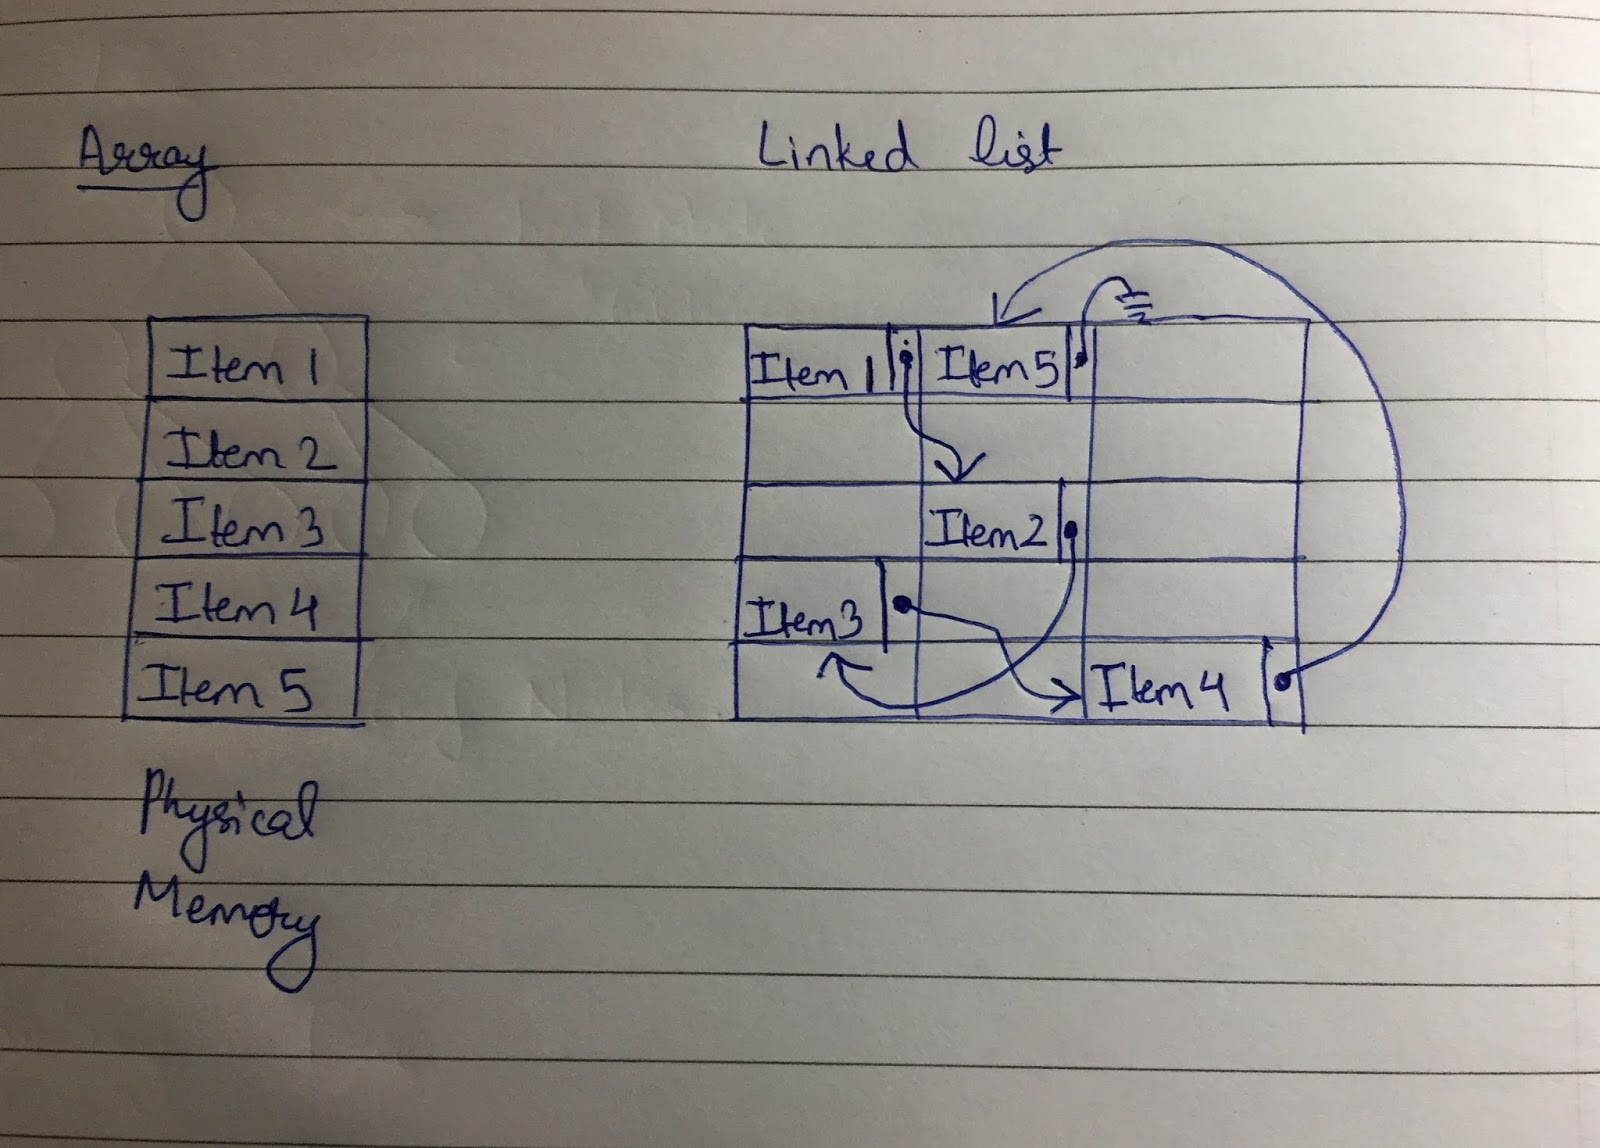 Array
Linked list
Item 1
Item 2
Item 3
Item 4
Item 5
Physical
Memory
Item 1 Item 5
Item 2
Item 3
Item 4